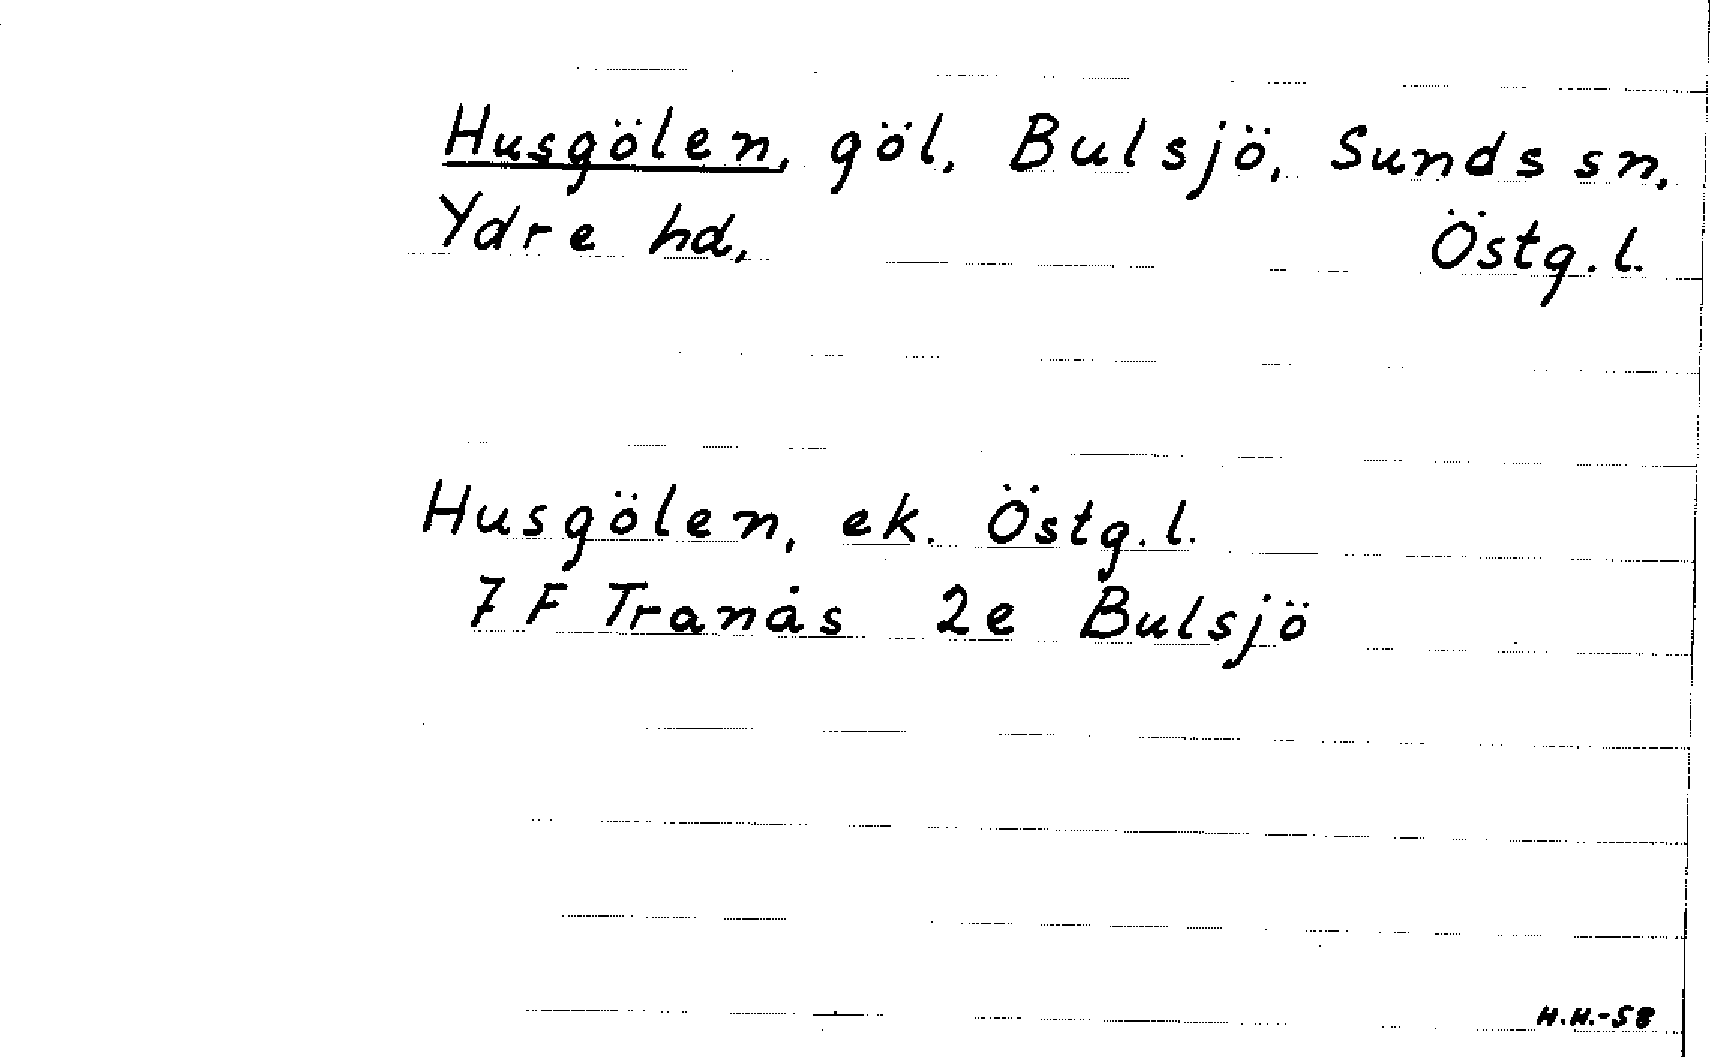 Husgölen, göl, Bulsjö, Sunds sn,
Ydre hd, Östg. l.
Husgölen, ek. Östg. l.
7 F Tranås 2e Bulsjö
H.H.-58